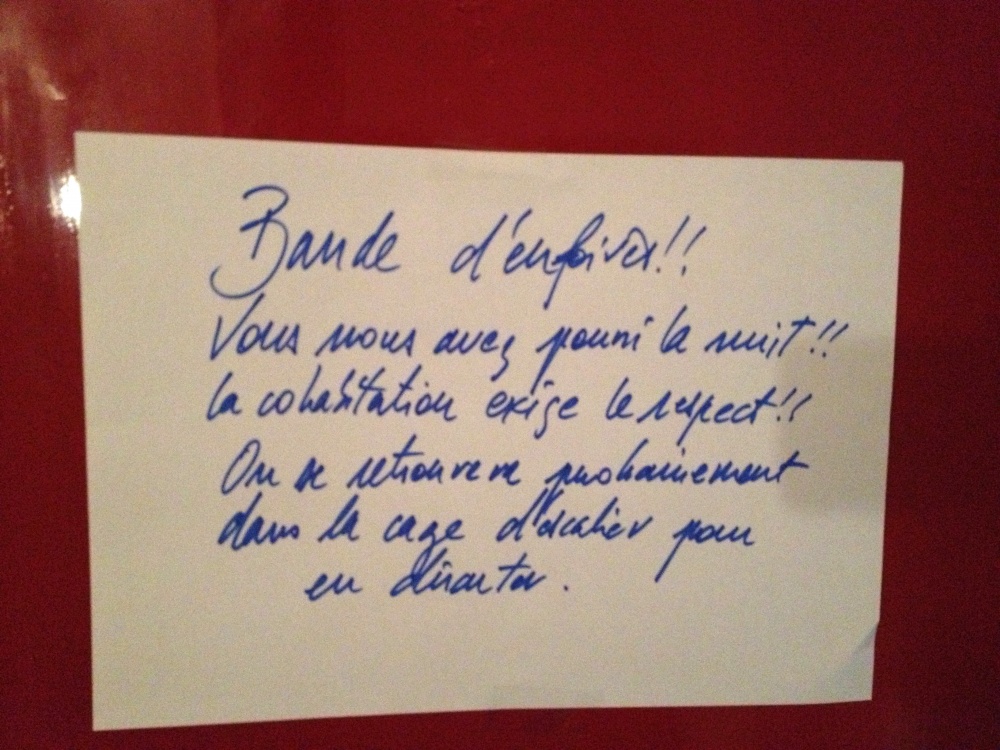 Bande d'enfoirés!!
Vous nous avez pourri la nuit!!
la cohabitation exige le respect!!
On se retrouvera prochainement
dans la cage d'escalier pour
en discuter.